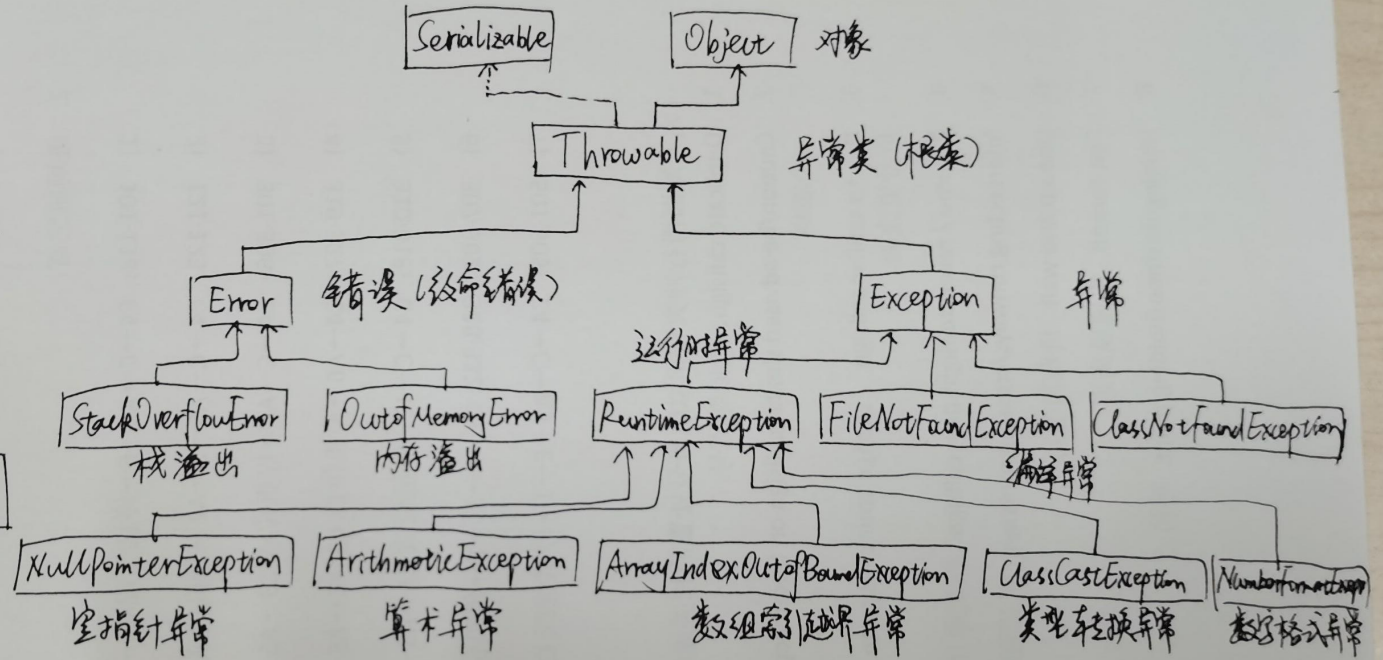 Serializable
Object 对象
Throwable 异常类(根类)
Error 错误(致命错误)
Exception 异常
运行时异常
StackOverflowError
OutofMemoryError
RuntimeException
FileNotFoundException
ClassNotFoundException
栈溢出
内存溢出
编译异常
NullPointerException
ArithmeticException
ArrayIndexOutofBoundException
ClassCastException
空指针异常
算术异常
数组索引越界异常
类型转换异常
数字格式异常